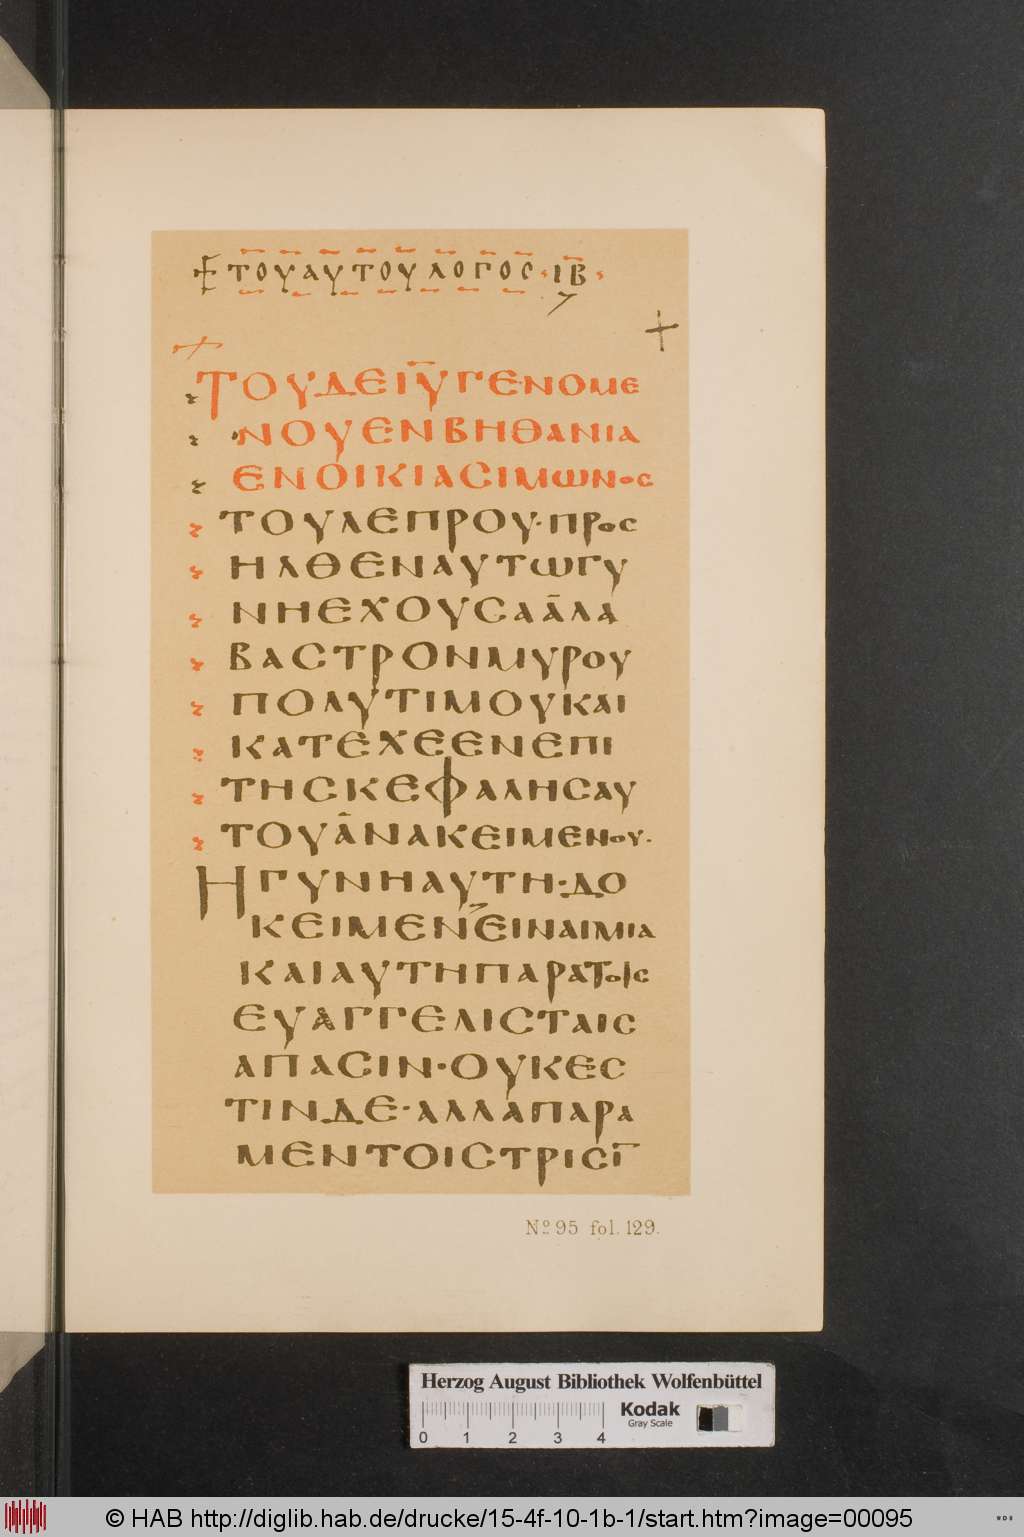 ΤΟΥΑΥΤΟΥΛΟΓΟC·ΙΒ·
ΤΟΥΔΕΙΥΓΕΝΟΜΕ
ΝΟΥΕΝΒΗΘΑΝΙΑ
ΕΝΟΙΚΙΑCΙΜΩΝΟC
ΤΟΥΛΕΠΡΟΥ·ΠΡΟC
ΗΛΘΕΝΑΥΤΩΓΥ
ΝΗΕΧΟΥCΑΑΛΑ
ΒΑCΤΡΟΝΜΥΡΟΥ
ΠΟΛΥΤΙΜΟΥΚΑΙ
ΚΑΤΕΧΕΕΝΕΠΙ
ΤΗCΚΕΦΑΛΗCΑΥ
ΤΟΥΑΝΑΚΕΙΜΕΝΟΥ·
ΗΓΥΝΗΑΥΤΗ·ΔΟ
ΚΕΙΜΕΝΕΙΝΑΙΜΙΑ
ΚΑΙΑΥΤΗΠΑΡΑΤΟΙC
ΕΥΑΓΓΕΛΙCΤΑΙC
ΑΠΑCΙΝ·ΟΥΚΕC
ΤΙΝΔΕ·ΑΛΛΑΠΑΡΑ
ΜΕΝΤΟΙCΤΡΙCΙ
Nº 95 fol. 129.
Herzog August Bibliothek Wolfenbüttel
0 1 2 3 4
Kodak
Gray Scale
© HAB http://diglib.hab.de/drucke/15-4f-10-1b-1/start.htm?image=00095